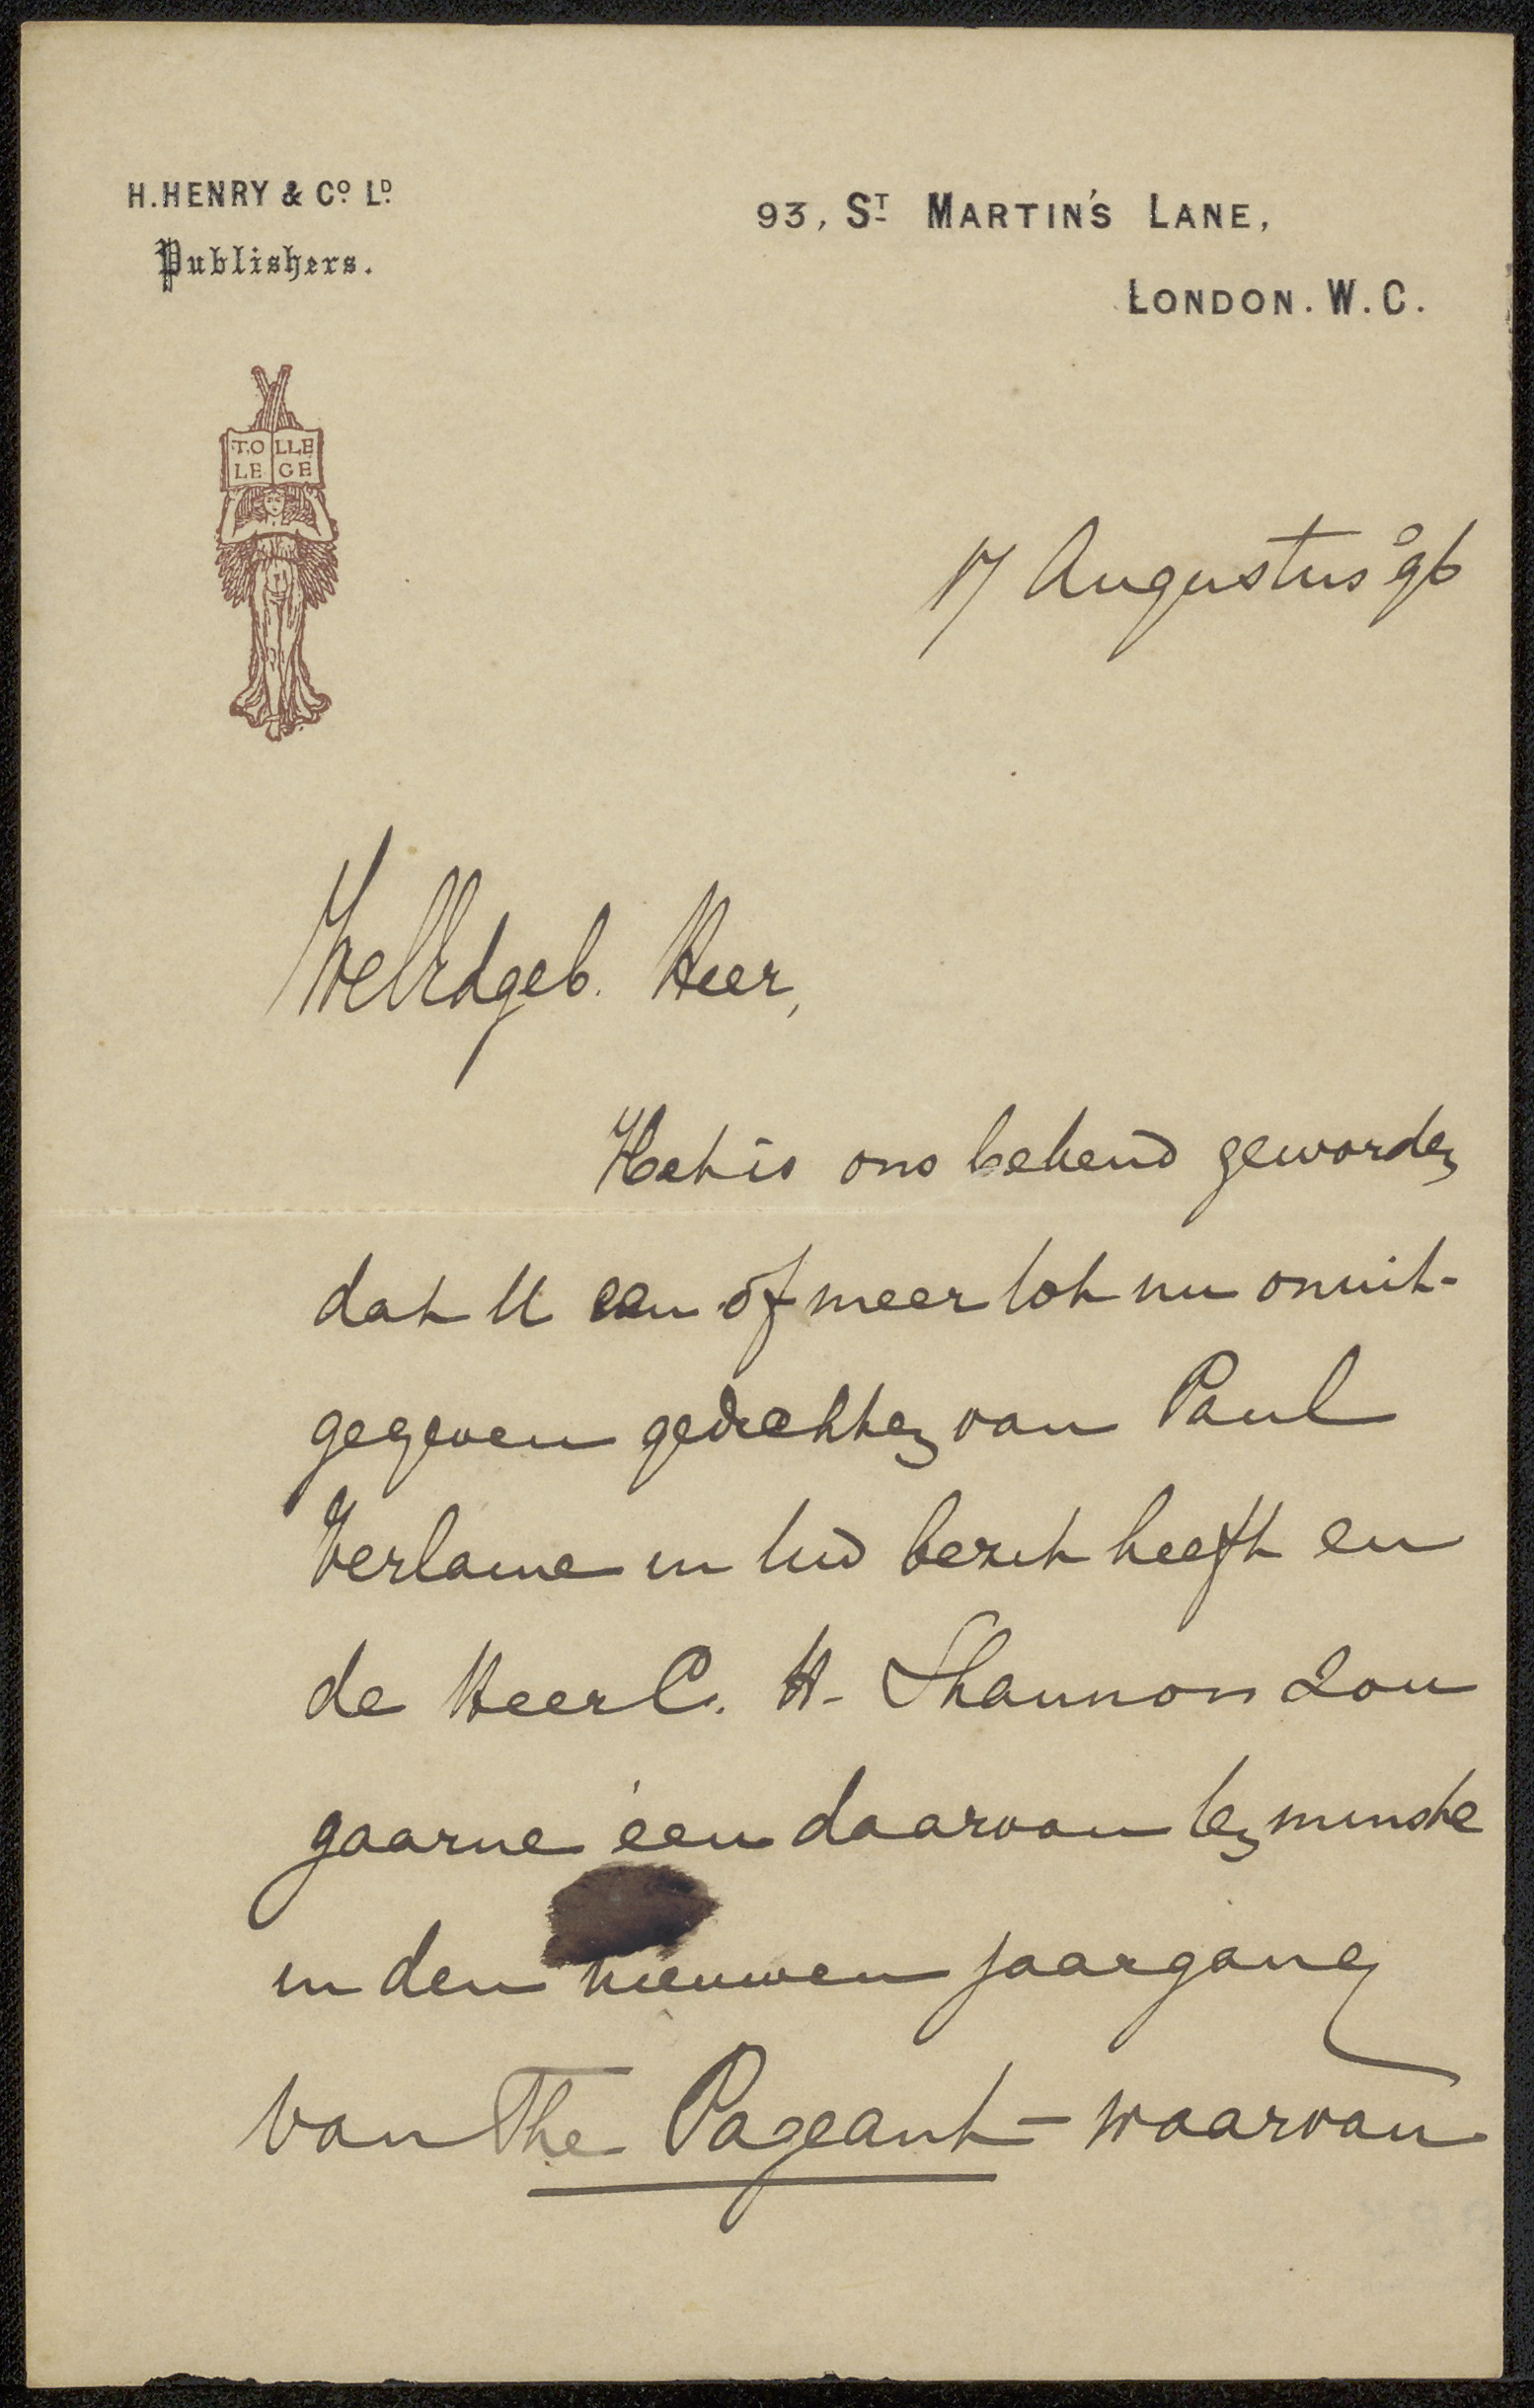 H. HENRY & Cº Lᴰ.
Publishers.
93, Sᵀ MARTIN'S LANE,
LONDON. W.C.
TOLLE
LEGE
17 Augustus 96
WelEdgeb. Heer,
Het is ons bekend geworden
dat U een of meer tot nu onuit-
gegeven gedichten van Paul
Verlaine in bezit heeft en
de Heer C. H. Shannon zou
gaarne één daarvan ten minste
in den nieuwen jaargang
van The Pageant – waarvan